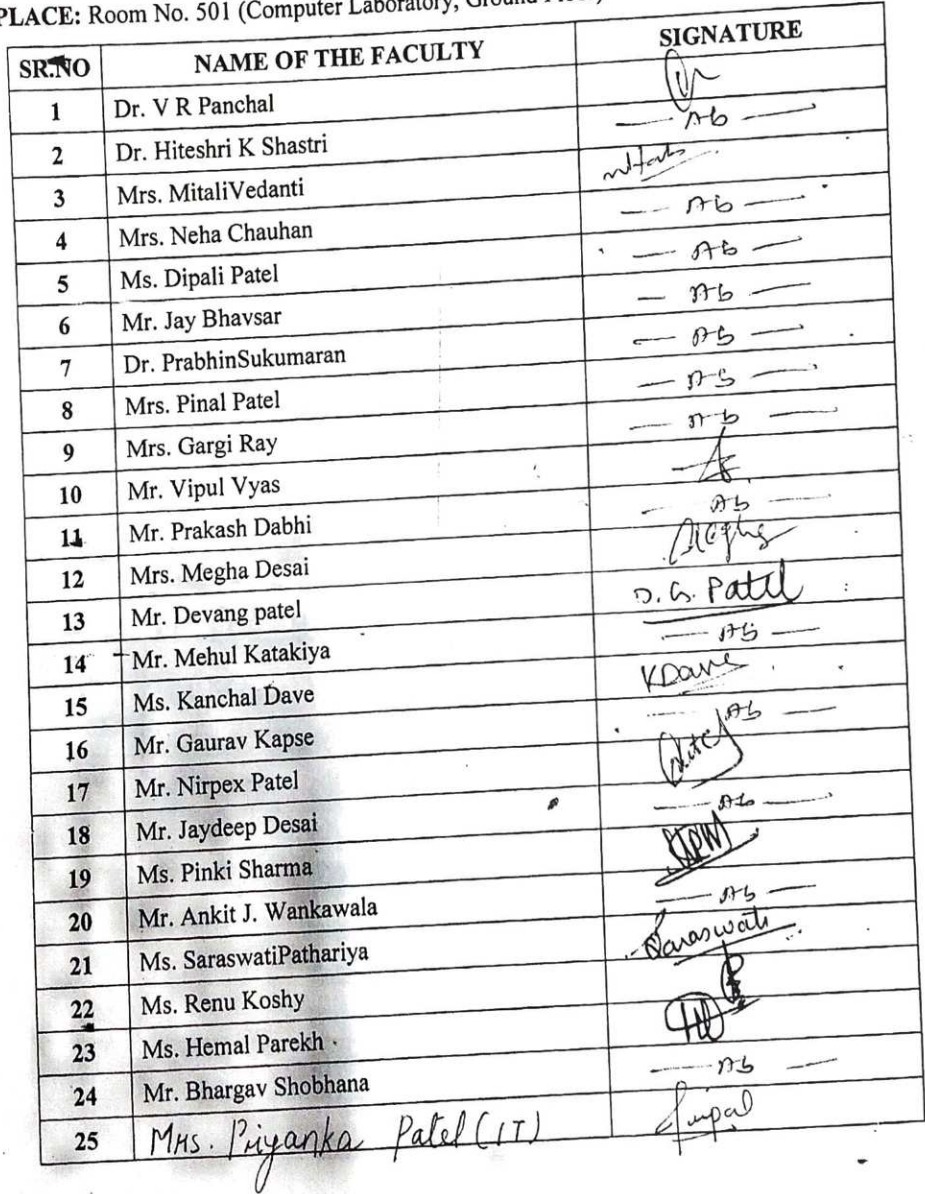 PLACE: Room No. 501 (Computer Laboratory, Ground
SR.NO NAME OF THE FACULTY SIGNATURE
1 Dr. V R Panchal
2 Dr. Hiteshri K Shastri Ab
3 Mrs. MitaliVedanti
4 Mrs. Neha Chauhan Ab
5 Ms. Dipali Patel Ab
6 Mr. Jay Bhavsar Ab
7 Dr. PrabhinSukumaran Ab
8 Mrs. Pinal Patel Ab
9 Mrs. Gargi Ray Ab
10 Mr. Vipul Vyas
11 Mr. Prakash Dabhi Ab
12 Mrs. Megha Desai
13 Mr. Devang patel D. G. Patel
14 Mr. Mehul Katakiya Ab
15 Ms. Kanchal Dave KDave
16 Mr. Gaurav Kapse Ab
17 Mr. Nirpex Patel
18 Mr. Jaydeep Desai Ab
19 Ms. Pinki Sharma
20 Mr. Ankit J. Wankawala Ab
21 Ms. SaraswatiPathariya Saraswati
22 Ms. Renu Koshy
23 Ms. Hemal Parekh
24 Mr. Bhargav Shobhana Ab
25 Mrs. Priyanka Patel (IT)